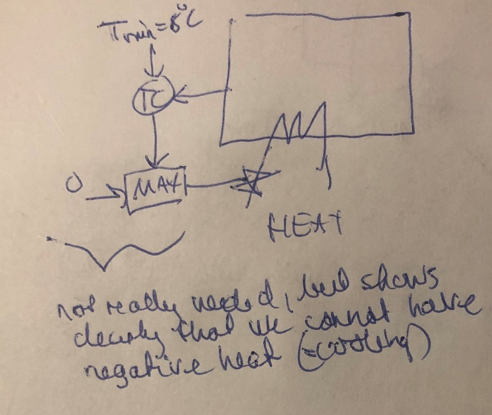 Tmin=8°C
TC
0
MAX
HEAT
not really needed, but shows
clearly that we cannot have
negative heat (=cooling)